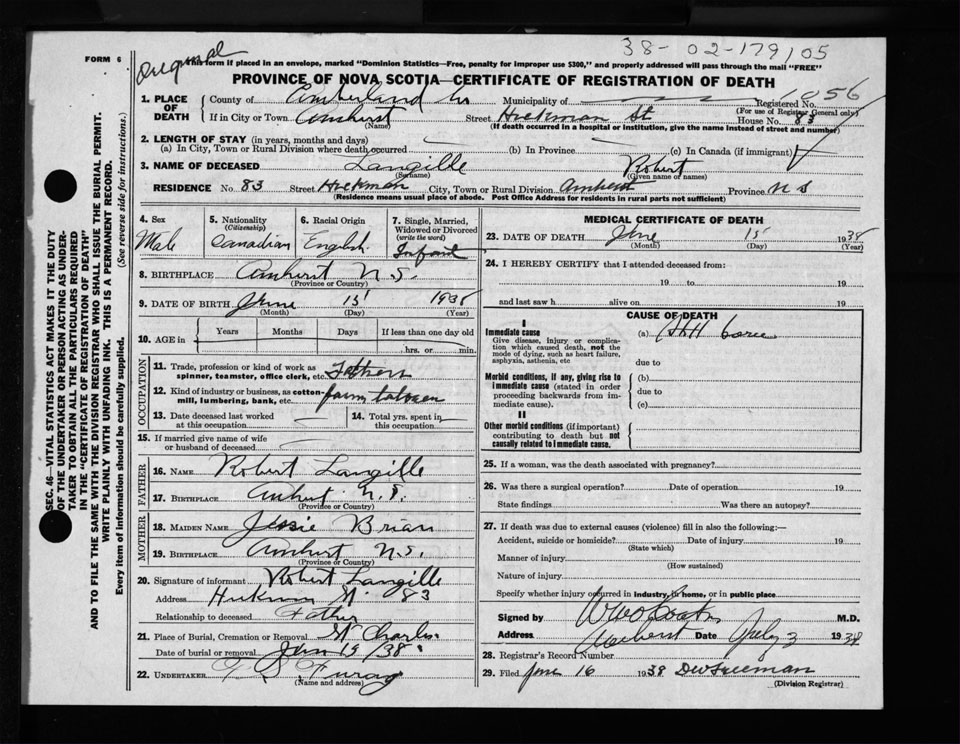 38-02-179105
FORM 6
Original
This form if placed in an envelope, marked "Dominion Statistics—Free, penalty for improper use $300," and properly addressed will pass through the mail "FREE"
PROVINCE OF NOVA SCOTIA—CERTIFICATE OF REGISTRATION OF DEATH
1056
1. PLACE OF DEATH
County of Cumberland Co Municipality of Registered No.
(For use of Registrar General only)
If in City or Town Amherst (Name) Street Hickman St House No. 83
(If death occurred in a hospital or institution, give the name instead of street and number)
2. LENGTH OF STAY (in years, months and days)
(a) In City, Town or Rural Division where death occurred (b) In Province (c) In Canada (if immigrant)
3. NAME OF DECEASED Langille (Surname) Robert (Given name or names)
RESIDENCE No. 83 Street Hickman City, Town or Rural Division Amherst Province N S
(Residence means usual place of abode. Post Office Address for residents in rural parts not sufficient)
SEC. 46—VITAL STATISTICS ACT MAKES IT THE DUTY
OF THE UNDERTAKER OR PERSON ACTING AS UNDER-
TAKER TO OBTAIN ALL THE PARTICULARS REQUIRED
IN THE "CERTIFICATE OF REGISTRATION OF DEATH"
AND TO FILE THE SAME WITH THE DIVISION REGISTRAR WHO SHALL ISSUE THE BURIAL PERMIT.
WRITE PLAINLY WITH UNFADING INK. THIS IS A PERMANENT RECORD.
Every item of information should be carefully supplied. (See reverse side for instructions.)
4. Sex Male
5. Nationality (Citizenship) Canadian
6. Racial Origin English
7. Single, Married, Widowed or Divorced (write the word) Infant
8. BIRTHPLACE Amherst N.S.
(Province or Country)
9. DATE OF BIRTH June (Month) 15 (Day) 1938 (Year)
10. AGE in Years Months Days If less than one day old
hrs. or min.
OCCUPATION
11. Trade, profession or kind of work as
spinner, teamster, office clerk, etc. Fathers
12. Kind of industry or business, as cotton-
mill, lumbering, bank, etc. farm laborer
13. Date deceased last worked at this occupation
14. Total yrs. spent in this occupation
15. If married give name of wife
or husband of deceased
FATHER
16. NAME Robert Langille
17. BIRTHPLACE Amherst N.S.
(Province or Country)
MOTHER
18. MAIDEN NAME Jessie Brian
19. BIRTHPLACE Amherst N.S.
(Province or Country)
20. Signature of informant Robert Langille
Address Hickman St. 83
Relationship to deceased Father
21. Place of Burial, Cremation or Removal St Charles
Date of burial or removal June 19/38
22. UNDERTAKER
(Name and address)
MEDICAL CERTIFICATE OF DEATH
23. DATE OF DEATH June (Month) 15 (Day) 1938 (Year)
24. I HEREBY CERTIFY that I attended deceased from:
19 to 19
and last saw h alive on 19
CAUSE OF DEATH
I
Immediate cause (a) Still born
Give disease, injury or complica-
tion which caused death, not the
mode of dying, such as heart failure,
asphyxia, asthenia, etc.
due to
Morbid conditions, if any, giving rise to
immediate cause (stated in order
proceeding backwards from im-
mediate cause).
(b)
due to
(c)
II
Other morbid conditions (if important)
contributing to death but not
causally related to immediate cause.
25. If a woman, was the death associated with pregnancy?
26. Was there a surgical operation? Date of operation 19
State findings Was there an autopsy?
27. If death was due to external causes (violence) fill in also the following:—
Accident, suicide or homicide? (State which) Date of injury 19
Manner of injury
(How sustained)
Nature of injury
Specify whether injury occurred in industry, in home, or in public place
Signed by M.D.
Address Amherst Date July 3 1938
28. Registrar's Record Number
29. Filed June 16 1938 Freeman
(Division Registrar)